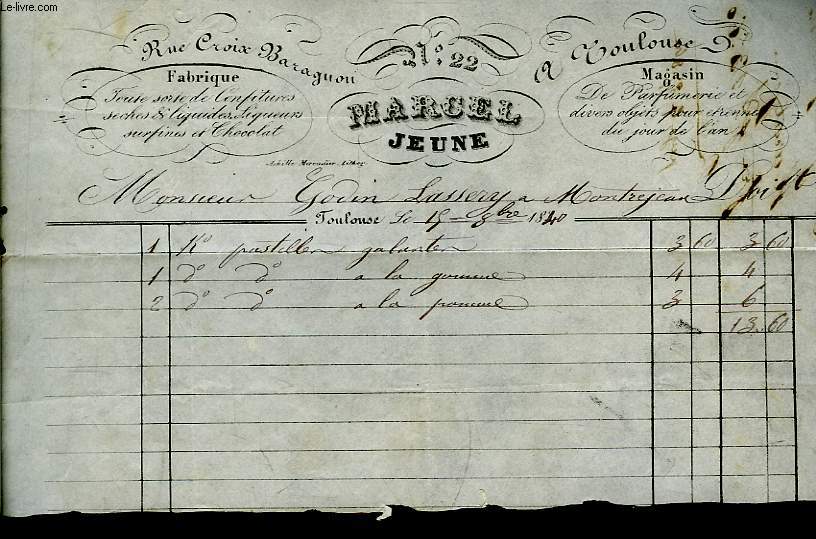 Le-livre.com
Rue Croix Baragnon
N.º 22
A Toulouse
Fabrique
Toute sorte de Confitures
seches & liquides, Liqueurs
surfines et Chocolat
MARCEL
JEUNE
Magasin
De Parfumerie et
divers objets pour étrennes
du jour de l'an
Achille Lithog.
Monsieur Godin Lassery a Montrejeau Doit
Toulouse le 15 8bre 1840
1 Ko pastilles galantes 3 60 3 60
1 do do a la gomme 4 4
2 do do a la pomme 3 6
13.60